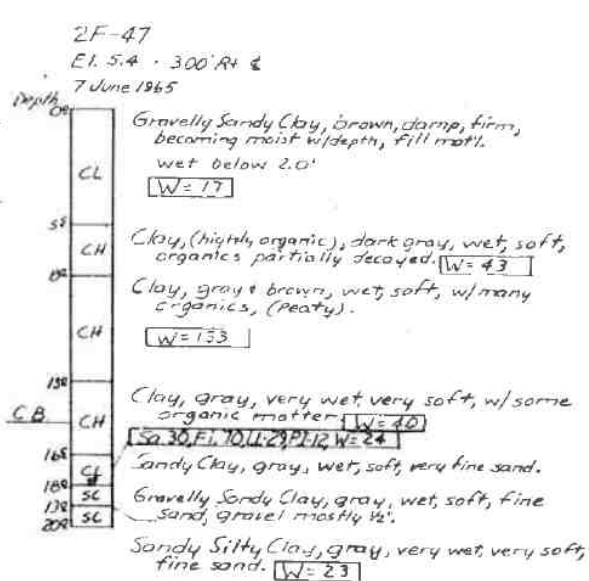 2F-47
El. 5.4 · 300' Rt ℄
7 June 1965
Depth
Gravelly Sandy Clay, brown, damp, firm,
becoming moist w/depth, fill matl.
wet below 2.0'
CL
W=17
CH
Clay, (highly organic), dark gray, wet, soft,
organics partially decayed. W=43
Clay, gray & brown, wet, soft, w/many
organics, (Peaty).
CH
W=133
Clay, gray, very wet, very soft, w/ some
C.B.
CH
organic matter. W=40
Sa.30, Fi.70, LL-29, PI-12, W=24
CL
Sandy Clay, gray, wet, soft, very fine sand.
SC
Gravelly Sandy Clay, gray, wet, soft, fine
sand, gravel mostly ½".
SC
Sandy Silty Clay, gray, very wet, very soft,
fine sand. W=23